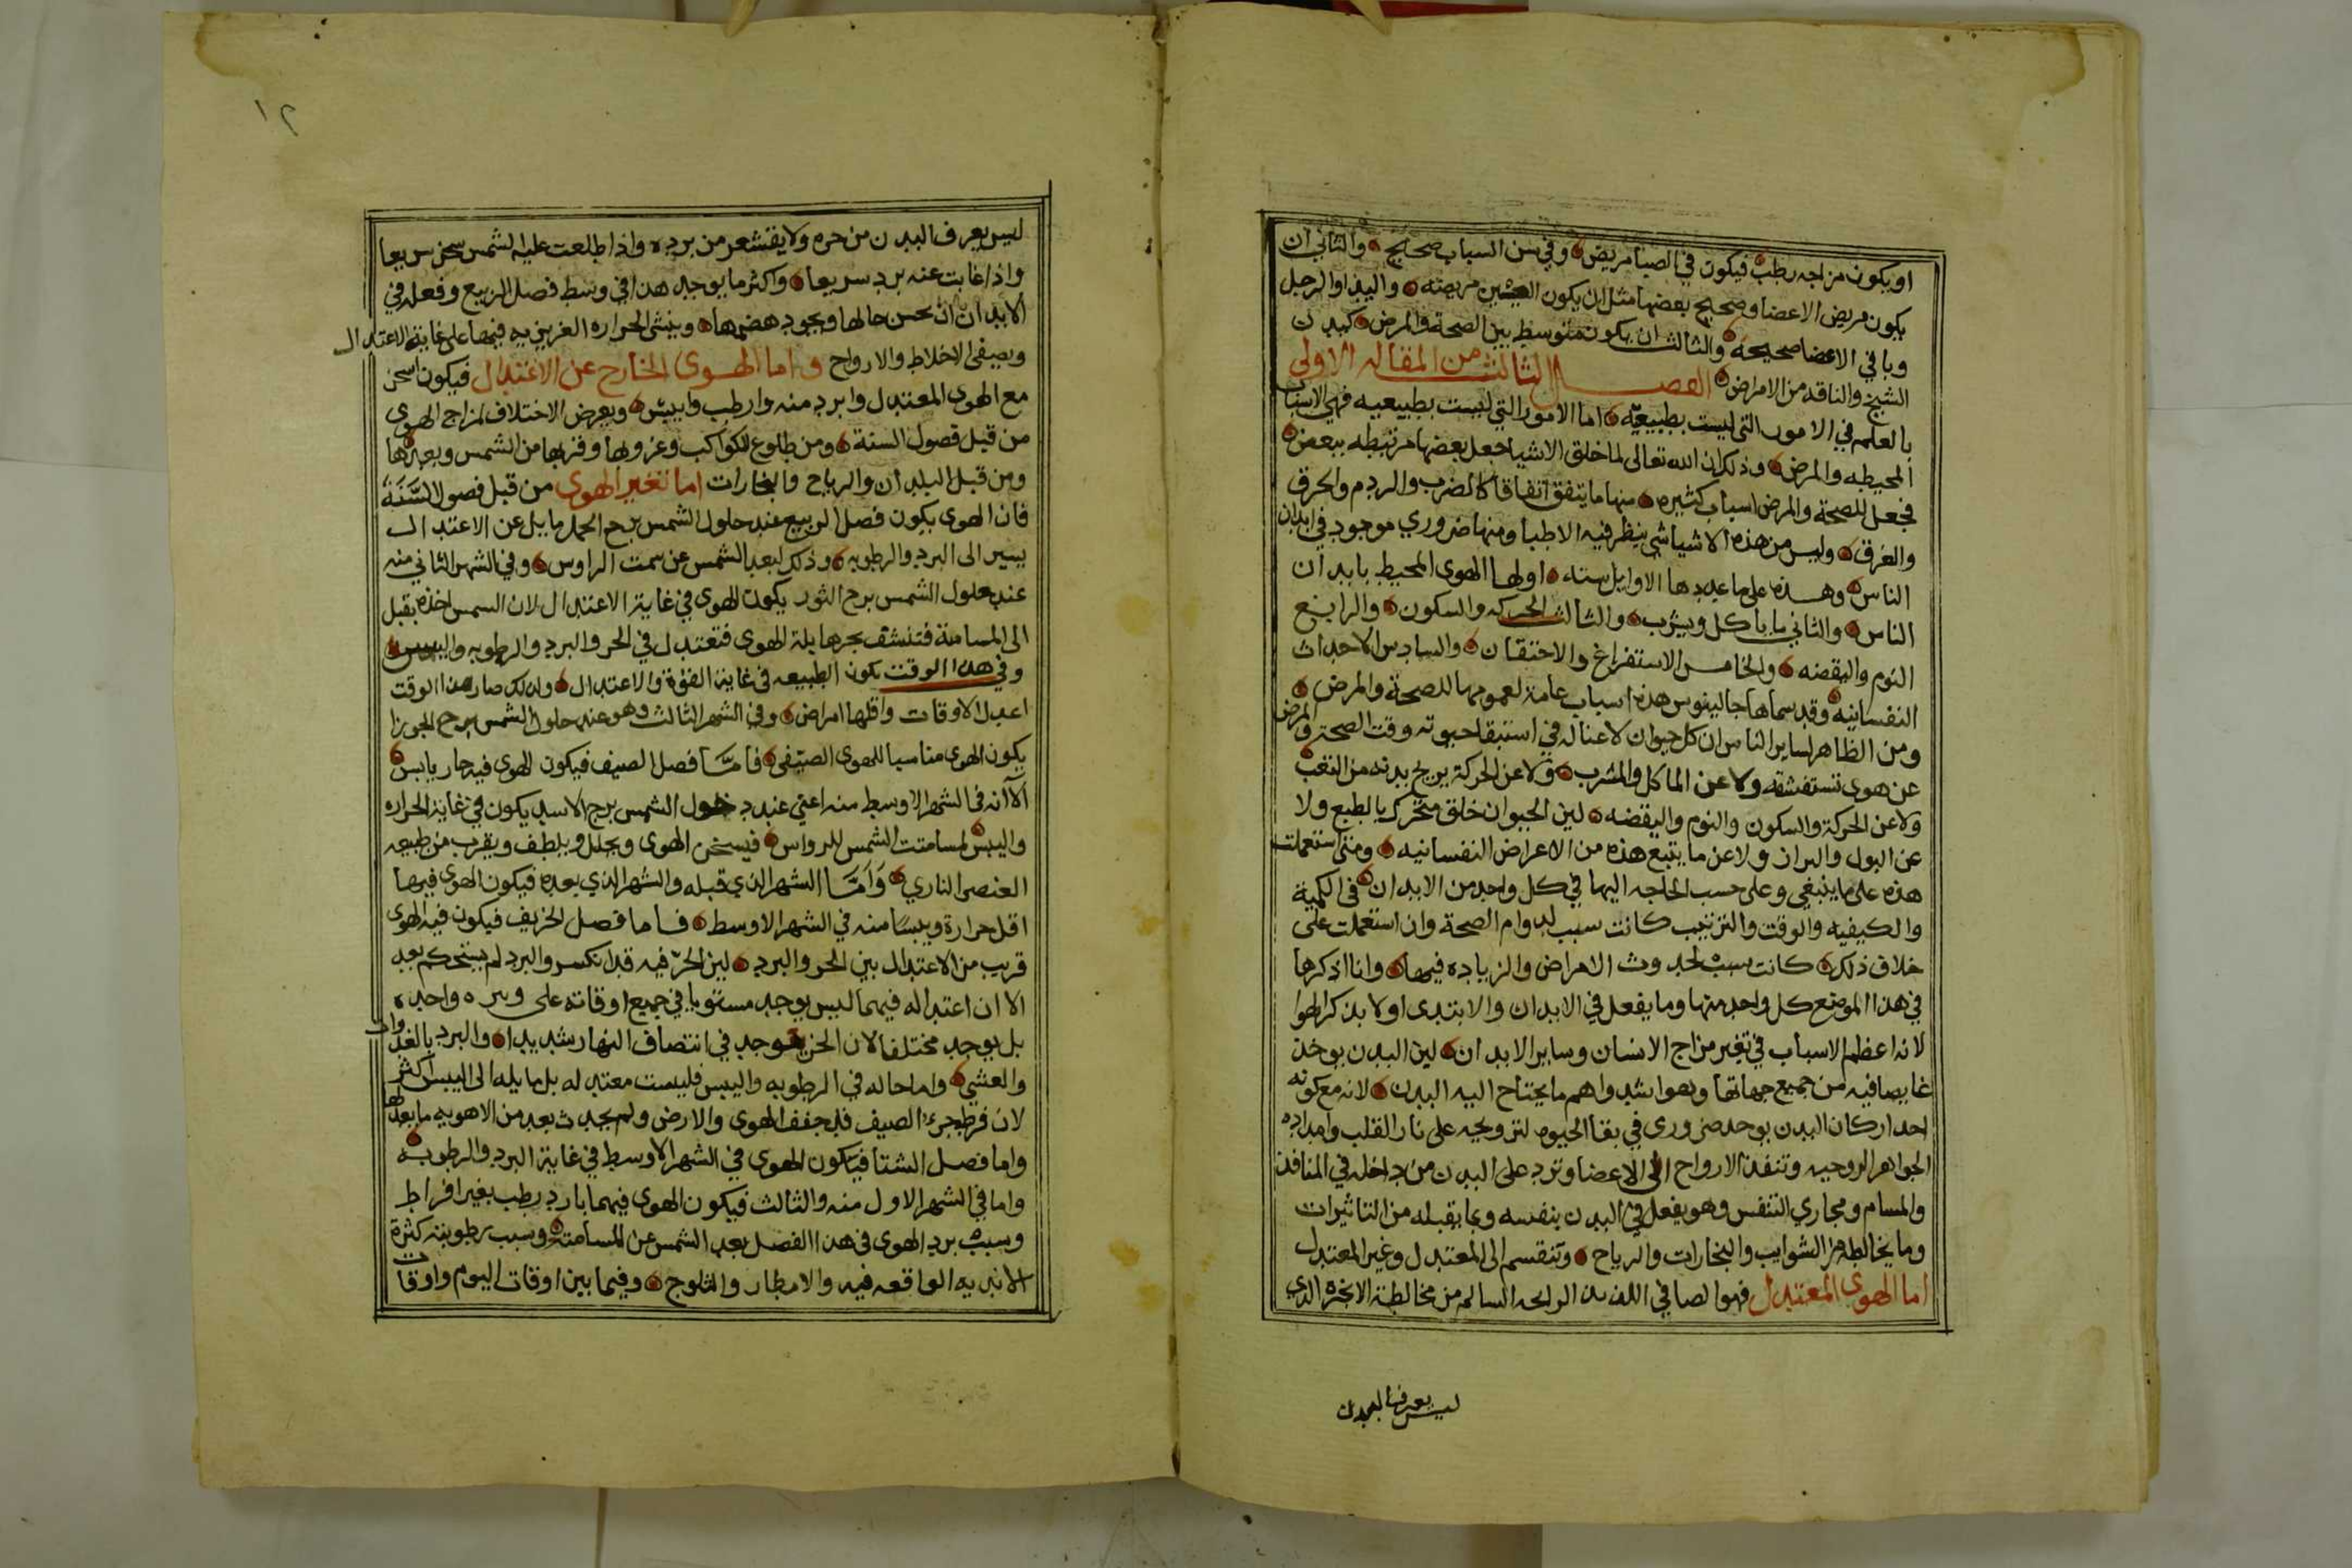 او يكون مزاجه رطب فيكون في الصبا مريض وفي سن الشباب صحيح والثاني ان
يكون مريض الاعضا وصحيح بعضها مثل ان يكون العينين مريضه واليد او الرجل
وباقي الاعضا صحيحه والثالث ان يكون متوسط بين الصحة والمرض كبدن
الشيخ والناقه من الامراض الفصل الثالث من المقاله الاولى
بالعلم في الامور التي ليست بطبيعيّه اما الامور التي ليست بطبيعيه فهي الاسباب
المحيطه والمرض وذلك ان الله تعالى لما خلق الاشيا جعل بعضها مرتبطه ببعض
فجعل للصحة والمرض اسباب كثيره منها ما يتفق اتفاقا كالضرب والردم والحرق
والغرق وليس من هذه الاشيا شي ينظر فيه الاطبا ومنها ضروري موجود في ابدان
الناس وهذه على ما عددها الاوايل سته اولها الهوى المحيط بابدان
الناس والثاني ما ياكل ويشرب والثالث الحركه والسكون والرابع
النوم واليقضه والخامس الاستفراغ والاحتقان والسادس الاحداث
النفسانيه وقد سماها جالينوس هذه اسباب عامة لعمومها للصحة والمرض
ومن الظاهر لساير الناس ان كل حيوان لا غنا له في استبقا حيوته وقت الصحة والمرض
عن هوى تستنشقه ولا عن الماكل والمشرب ولا عن الحركة يريح بدنه من التعب
ولا عن الحركة والسكون والنوم واليقضه لين الحيوان خلق متحرك بالطبع ولا
عن البول والبراز ولا عن ما يتبع هذه من الاعراض النفسانيه ومتى استعملت
هذه على ما ينبغي وعلى حسب الحاجه اليها في كل واحد من الابدان في الكمية
والكيفيه والوقت والترتيب كانت سبب لدوام الصحة وان استعملت على
خلاف ذلك كانت سبب لحدوث الامراض والزياده فيها وانا اذكرها
في هذا الموضع كل واحد منها وما يفعل في الابدان والابتدى اولا بذكر الهوا
لانه اعظم الاسباب في تغير مزاج الانسان وساير الابدان لين البدن يوخذ
غايصا فيه من جميع جهاتها وهو اشد واهم ما يحتاج اليه البدن لانه مع كونه
احد اركان البدن يوجد ضروري في بقا الحيوه لترويحه على نار القلب وامداده
الجواهر الروحيه وتنفذ الارواح الى الاعضا وترد على البدن من داخله في المنافذ
والمسام ومجاري التنفس وهو يفعل في البدن بنفسه وبما يقبله من التاثيرات
وما يخالطه من الشوايب والبخارات والرياح وتنقسم الى المعتدل وغير المعتدل
اما الهوى المعتدل فهو الصافي اللذيذ الرايحه السالم من مخالطة الابخره الذي
ليس يعرف البدن
١٢
ليس يعرف البدن من حره ولا يقشعر من برده واذا طلعت عليه الشمس سخن سريعا
واذا غابت عنه برد سريعا واكثر ما يوجد هذا في وسط فصل الربيع وفعله في
الابدان ان تحسن حالها ويجود هضمها وينشى الحراره الغريزيه فيها على غاية الاعتدال
ويصفى الاخلاط والارواح واما الهوى الخارج عن الاعتدال فيكون اسخن
مع الهوى المعتدل وابرد منه وارطب وايبس ويعرض الاختلاف لمزاج الهوى
من قبل فصول السنة ومن طلوع الكواكب وغروبها وقربها من الشمس وبعدها
ومن قبل البلدان والرياح والبخارات اما تغير الهوى من قبل فصول السَّنَةُ
فان الهوى يكون فصل الربيع عند حلول الشمس برج الحمل مايل عن الاعتدال
يسير الى البرد والرطوبه وذلك لبعد الشمس عن سمت الراوس وفي الشهر الثاني منه
عند حلول الشمس برج الثور يكون الهوى في غاية الاعتدال لان الشمس اخذه بقبل
الى المسامتة فتنشف بحرها بلة الهوى فتعتدل في الحر والبرد والرطوبه واليبس
وفي هذا الوقت يكون الطبيعه في غاية القوة والاعتدال ولذلك صار هذا الوقت
اعدل الاوقات واقلها امراض وفي الشهر الثالث وهو عند حلول الشمس برج الجوزا
يكون الهوى مناسبا للهوى الصيّفي فامّا فصل الصيف فيكون الهوى فيه حار يابس
الا انه في الشهر الاوسط منه اعني عند دخول الشمس برج الاسد يكون في غاية الحراره
واليبس لمسامتت الشمس للرواس فيسخن الهوى ويحلل ويلطف ويقرب من طبيعه
العنصر الناري وَاَمَّا الشهر الذي قبله والشهر الذي بعده فيكون الهوى فيها
اقل حرارة ويبسًا منه في الشهر الاوسط فاما فصل الخريف فيكون فيه الهوى
قريب من الاعتدال بين الحر والبرد لين الحرّ فيه قد انكسر والبرد لم يستحكم بعد
الا ان اعتداله فيهما ليس يوجد مستويا في جميع اوقاته على وتيره واحده
بل يوجد مختلفا لان الحر يوجد في انتصاف النهار شديدا والبرد بالغدوات
والعشي واما حاله في الرطوبه واليبس فليست معتدله بل مايله الى اليبس اكثر
لان فرط حر الصيف قد جفف الهوى والارض ولم يحدث بعد من الاهويه ما بعدلها
واما فصل الشتا فيكون الهوى في الشهر الاوسط في غاية البرد والرطوبه
واما في الشهر الاول منه والثالث فيكون الهوى فيهما بارد رطب بغير افراط
وسبب برد الهوى في هذا الفصل بعد الشمس عن المسامته وسبب رطوبته كثرة
الانديه الواقعه فيه والامطار والثلوج وفيما بين اوقات اليوم واوقات